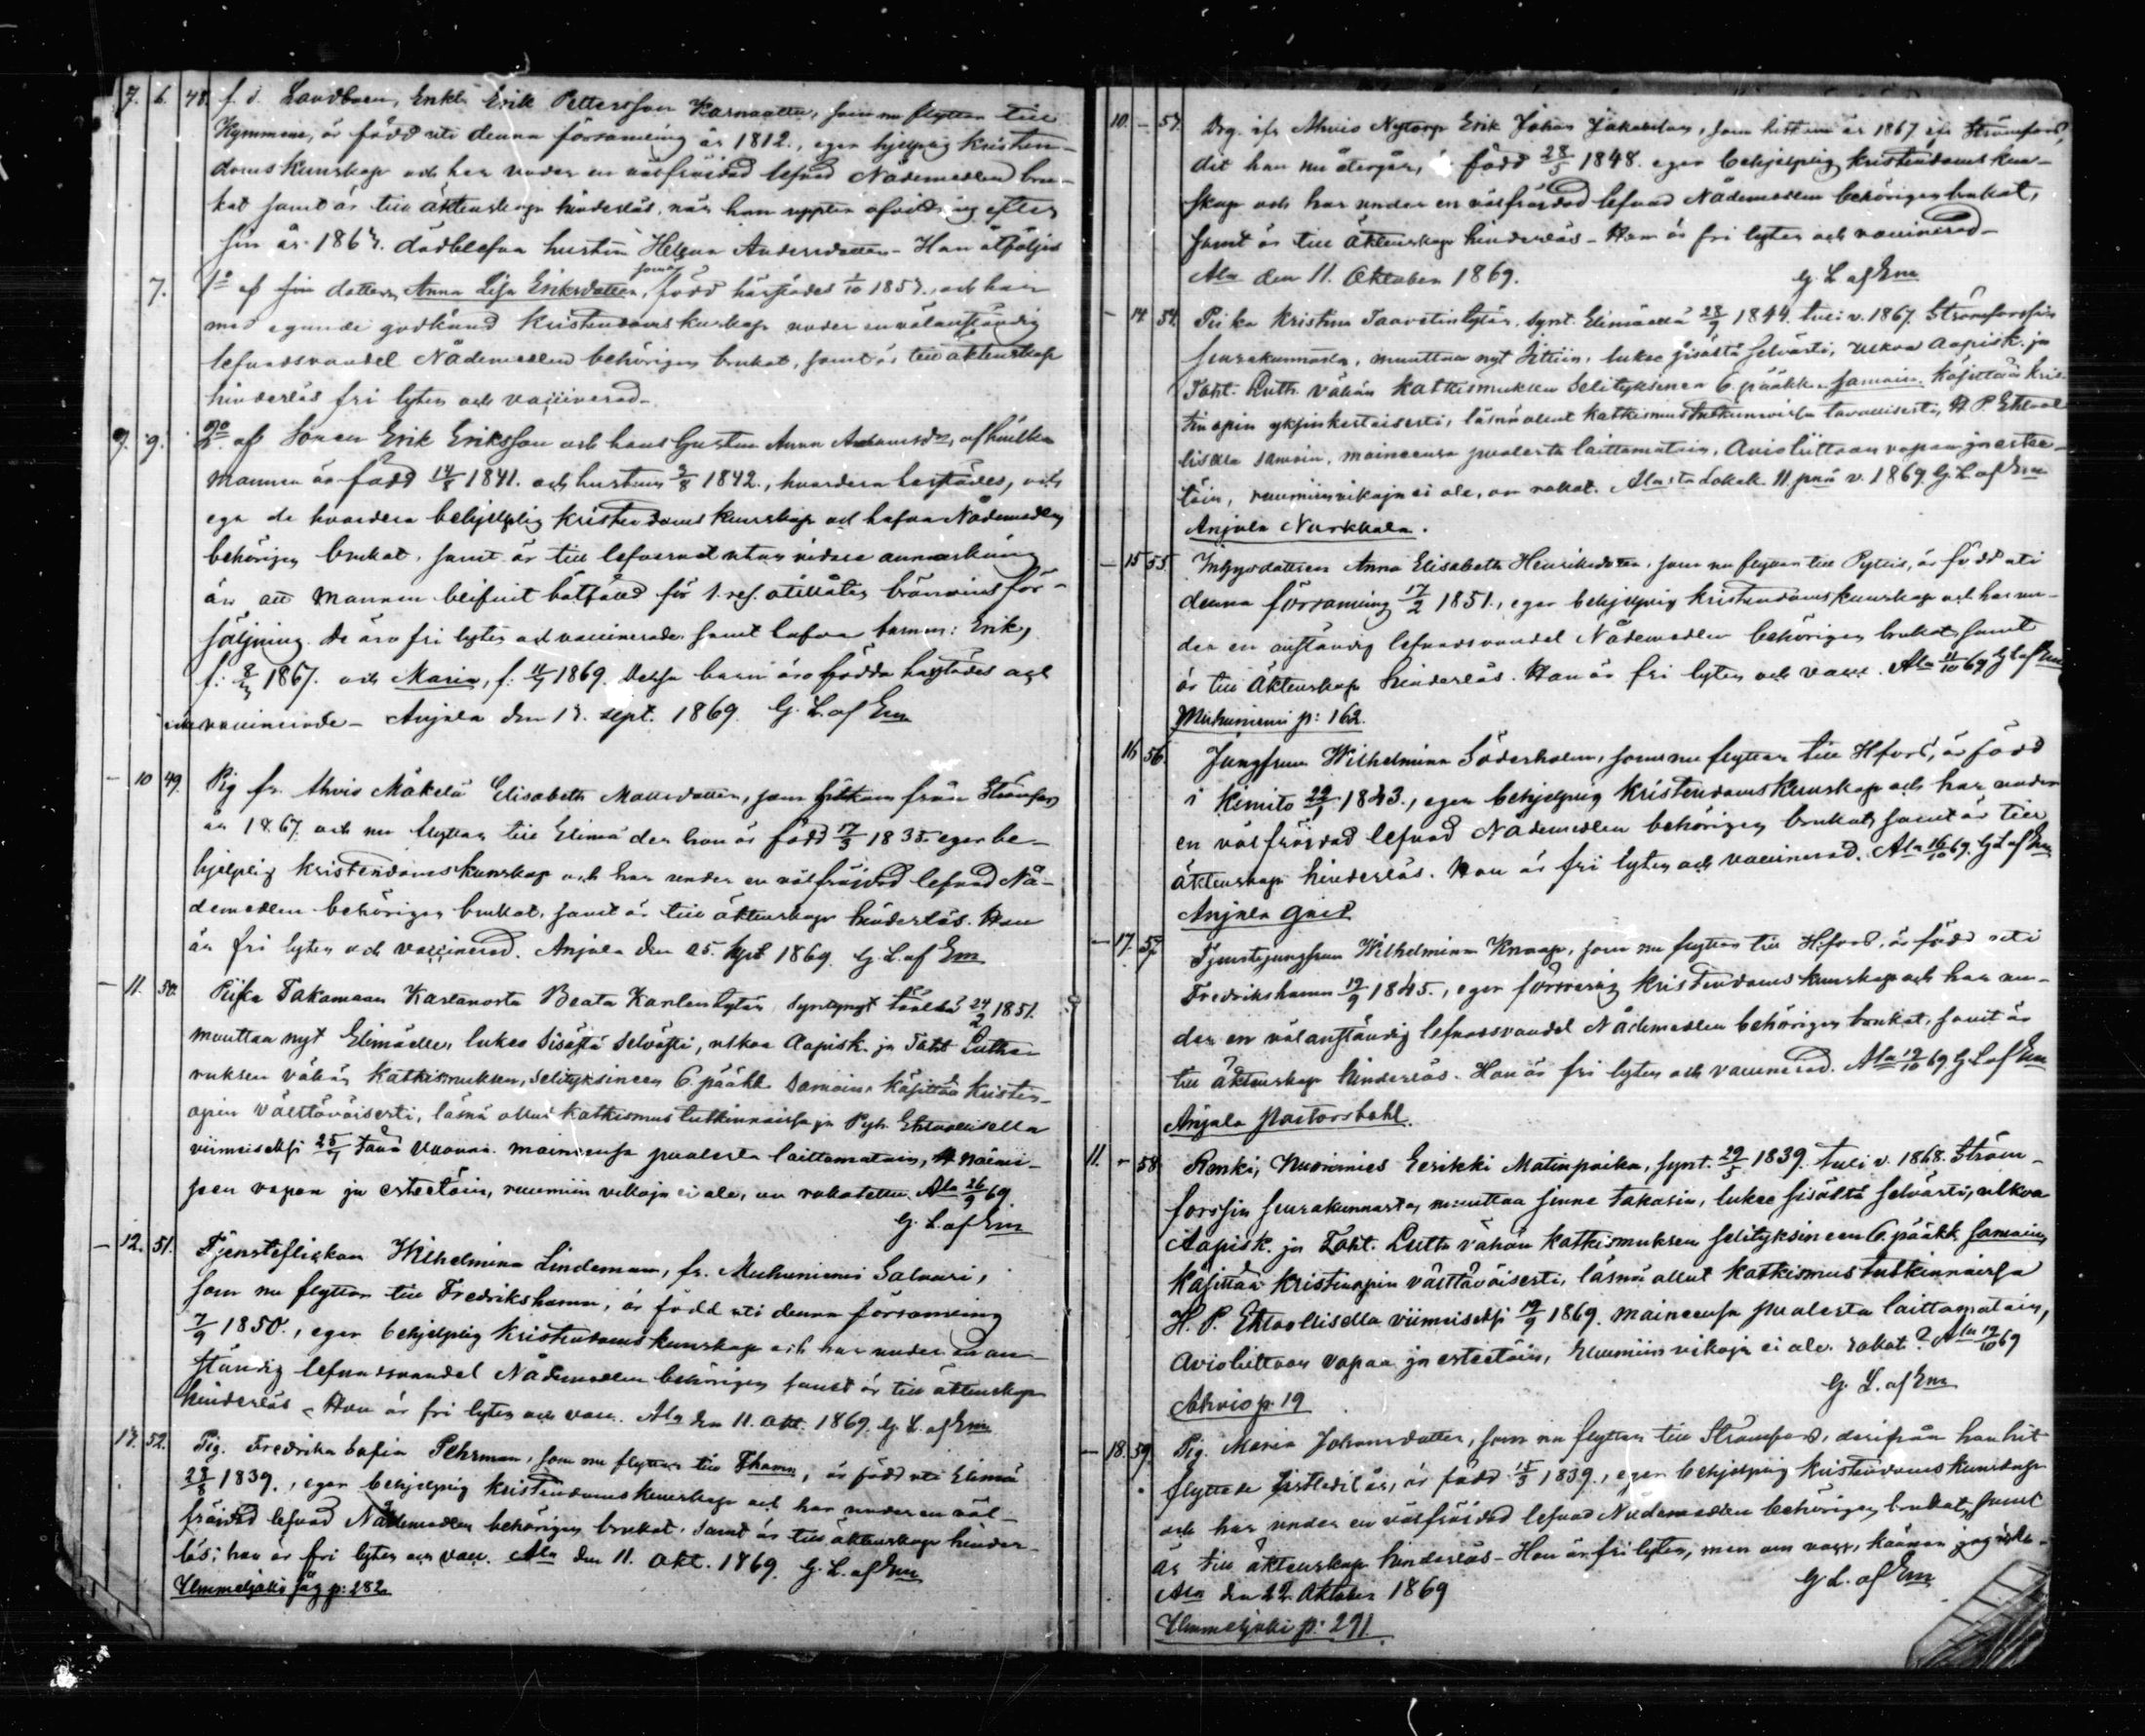 7. 6. 48. f. d. Landbon, Enkl. Erik Pettersson Karnaatta, som nu flyttar till
Kymmene, är född uti denna församling år 1812., eger hjelplig kristen-
doms kunskap och har under en välfräjdad lefnad Nådemedlen bru-
kat samt är till äktenskap hinderlös, när han uppter afvittring efter
sin år 1867. dödblefna hustru Helena Andersdotter - Han åtföljes
7. 1o af sin dotter, Anna Lisa Eriksdotter, som född härstädes 1/10 1857., och har
med egande godkänd Kristendoms kunskap under en välanständig
lefnadsvandel Nådemedlen behörigen brukat, samt är till äktenskap
hinderlös fri lyten och vaccinerad.-
9. 9. 2o af Sonen Erik Eriksson och hans hustru Anna Adamsdr, af hvilka
mannen är född 14/8 1841. och hustrun 3/8 1842., hvardera härstädes, och
ega de hvardera behjelplig kristendoms kunskap och hafva Nådemedlen
behörigen brukat, samt är till lefvernet utan vidare anmärkning
än att mannen blifvit bötfälld för 1. res. otillåten brännvinsför-
säljning. De äro fri lyten och vaccinerade, samt hafva barnen: Erik,
f: 8/3 1867. och Maria, f: 11/7 1869. Dessa barn äro födda härstädes och
vaccinerade - Anjala den 17. Sept. 1869. G. L. af Em
- 10 49. Pig fr. Ahvio Mäkelä Elisabeth Mattsdotter, som hitkom från Strömfors
år 1867. och nu flyttar till Elimä der hon är född 17/3 1835. eger be-
hjelplig kristendoms kunskap och har under en välfräjdad lefnad Nå-
demedlen behörigen brukat, samt är till äktenskap hinderlös. Hon
är fri lyten och vaccinerad. Anjala den 25. Sept 1869. G. L. af Em
- 11. 50. Piika Takamaan Kartanosta Beata Karlentytär, syntynyt täällä 24/2 1851.
muuttaa nyt Elimäelle, lukee sisästä selvästi, ulkoa Aapisk. ja Toht Luthe-
ruksen vähän Katkismuksen, Selityksineen 6. pääkk samoin. Käsittää kristin-
opin välttäväisesti, läsnä ollut katkismustutkinnoissa ja Pyh. Ehtoollisella
viimeiseksi 25/7 tänä vuonna. maineensa puolesta laittamatoin, Naimi-
seen vapaa ja esteetöin, ruumiin vikoja ei ole, on rokotettu. Ala 26/9 69.
G. L. af Em
- 12. 51. Tjensteflickan Wilhelmina Lindeman, fr. Muhuniemi Salvari,
som nu flyttar till Fredrikshamn, är född uti denna församling
7/9 1850., eger behjelplig kristendoms kunskap och har under en an-
ständig lefnadsvandel Nådemedlen behörigen samt är till äktenskap
hinderlös - Hon är fri lyten och vacc. Ala den 11. Okt. 1869. G. L. af Em
13. 52. Pig. Fredrika Sofia Pehrman, som nu flyttar till Fhamn, är född uti Elimä
28/8 1839., eger behjelplig kristendoms kunskap och har under en väl-
fräjdad lefnad Nådemedlen behörigen brukat, samt är till äktenskap hinder-
lös; hon är fri lyten och vacc. Ala den 11. Okt. 1869. G. L. af Em
Ummeljoki såg p: 282.
10. - 53. Drg. ifr Ahvio Nytorp Erik Johan Jakobsson, som hitkom år 1867 ifr Strömfors,
dit han nu återgår, är född 28/5 1848. eger behjelplig kristendoms kun-
skap och har under en välfräjdad lefnad Nådemedlen behörigen brukat,
samt är till äktenskap hinderlös - Han är fri lyten och vaccinerad -
Ala den 11. Oktober 1869. G. L. af Em
- 14. 54. Piika Kristina Taavetintytär, synt. Elimäellä 28/9 1844. tuli v. 1867. Strömforssin
seurakunnasta, muuttaa nyt Iittiin, lukee sisältä selvästi, ulkoa Aapisk. ja
Toht. Luth. vähän Katkismuksen Selityksineen 6. pääkk. samoin. käsittää kris-
tinopin yksinkertaisesti, läsnä ollut katkismustutkinnoissa tavallisesti, H. P. Ehtool-
lisella samoin, maineensa puolesta laittamatoin, Avioliittoon vapaa ja estee-
töin, ruumiinvikoja ei ole, on rokot. Alasta Lokak. 11 pnä v. 1869. G. L. af Em
Anjala Nurkkala.
- 15 55. Inhysdottren Anna Elisabeth Henriksdotter, som nu flyttar till Pyttis, är född uti
denna församling 17/2 1851., eger behjelplig kristendoms kunskap och har un-
der en anständig lefnadsvandel Nådemedlen behörigen brukat, samt
är till äktenskap hinderlös. Hon är fri lyten och vacc. Ala 11/10 69 G L af Em
Muhuniemi p: 162.
16 56. Jungfrun Wilhelmina Söderholm, som nu flyttar till Hfors, är född
i Kimito 29/1 1843., eger behjelplig kristendoms kunskap och har under
en välfräjdad lefnad Nådemedlen behörigen brukat, samt är till
äktenskap hinderlös. Hon är fri lyten och vaccinerad. Ala 16/10 69. G L af Em
Anjala gård
- 17. 57. Tjenstejungfrun Wilhelmina Knaap, som nu flyttar till Hfors, är född uti
Fredrikshamn 19/9 1845., eger försvarlig kristendoms kunskap och har un-
der en välanständig lefnadsvandel Nådemedlen behörigen brukat, samt är
till äktenskap hinderlös. Hon är fri lyten och vaccinerad. Ala 19/10 69 G L af Em
Anjala pastorsbohl.
11. - 58. Renki, Nuorimies Eerikki Matinpoika, synt. 29/5 1839. tuli v. 1868. Ström-
forssin seurakunnasta, muuttaa sinne takasin, lukee sisältä selvästi, ulkoa
Aapisk. ja Toht. Luth vähän katkismuksen selityksineen 6. pääkk. samoin,
Käsittää kristinopin välttäväisesti, läsnä ollut katkismustutkinnoissa
H. P. Ehtoollisella viimeiseksi 19/9 1869. maineensa puolesta laittamatoin,
avioliittoon vapaa ja esteetöin, Ruumiin vikoja ei ole. rokot? Ala 19/10 69
G. L. af Em
Ahvio p. 19
- 18. 59. Pig. Maria Johansdotter, som nu flyttar till Strömfors, derifrån hon hit
flyttade sistledit år, är född 15/3 1839., eger behjelplig kristendoms kunskap
och har under en välfräjdad lefnad Nådemedlen behörigen brukat, samt
är till äktenskap hinderlös - Hon är fri lyten, men om vacc, känner jag icke -
Ala den 22. Oktober 1869 G L. af Em
Ummeljoki p: 291.